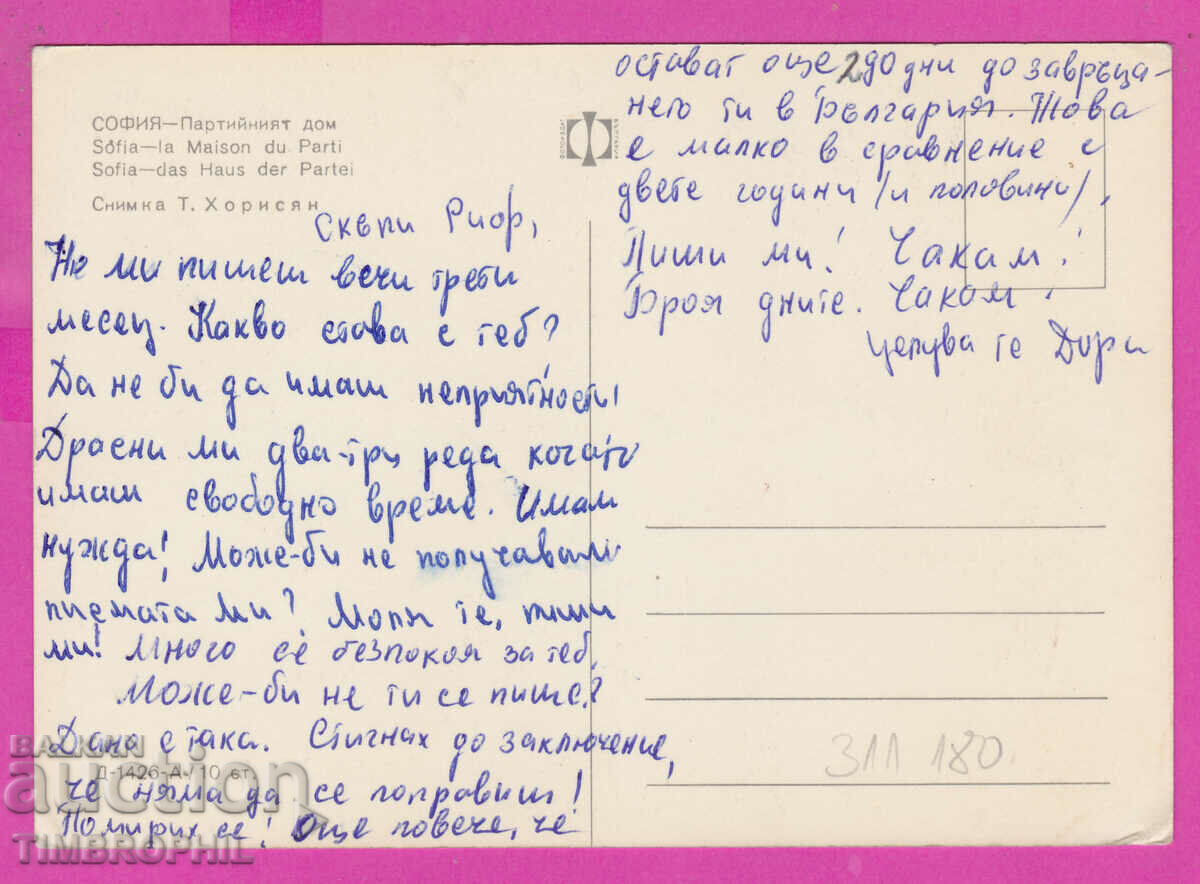 СОФИЯ—Партийният дом
Sofia—la Maison du Parti
Sofia—das Haus der Partei
Снимка Т. Хорисян
скъпи Риор,
Не ми пишеш вечи трети
месец. Какво става с теб?
Да не би да имаш неприятности!
Драсни ми два-три реда когато
имаш свободно време. Имам
нужда! Може-би не получаваш
писмата ми? Моля те, пиши
ми! Много се безпокоя за теб.
Може-би не ти се пише?
Дано е така. Стигнах до заключение,
че няма да се поправиш!
Помирих се! Още повече, че
остават още 2 до дни до завръща-
нето ти в България. Това
е малко в сравнение с
двете години /и половини/.
Пиши ми! Чакам!
Броя дните. Чакам!
целува те Дора
Д-1426-А / 10 ст.
311 180
БАЛКАН
auction
TIMBROPHIL